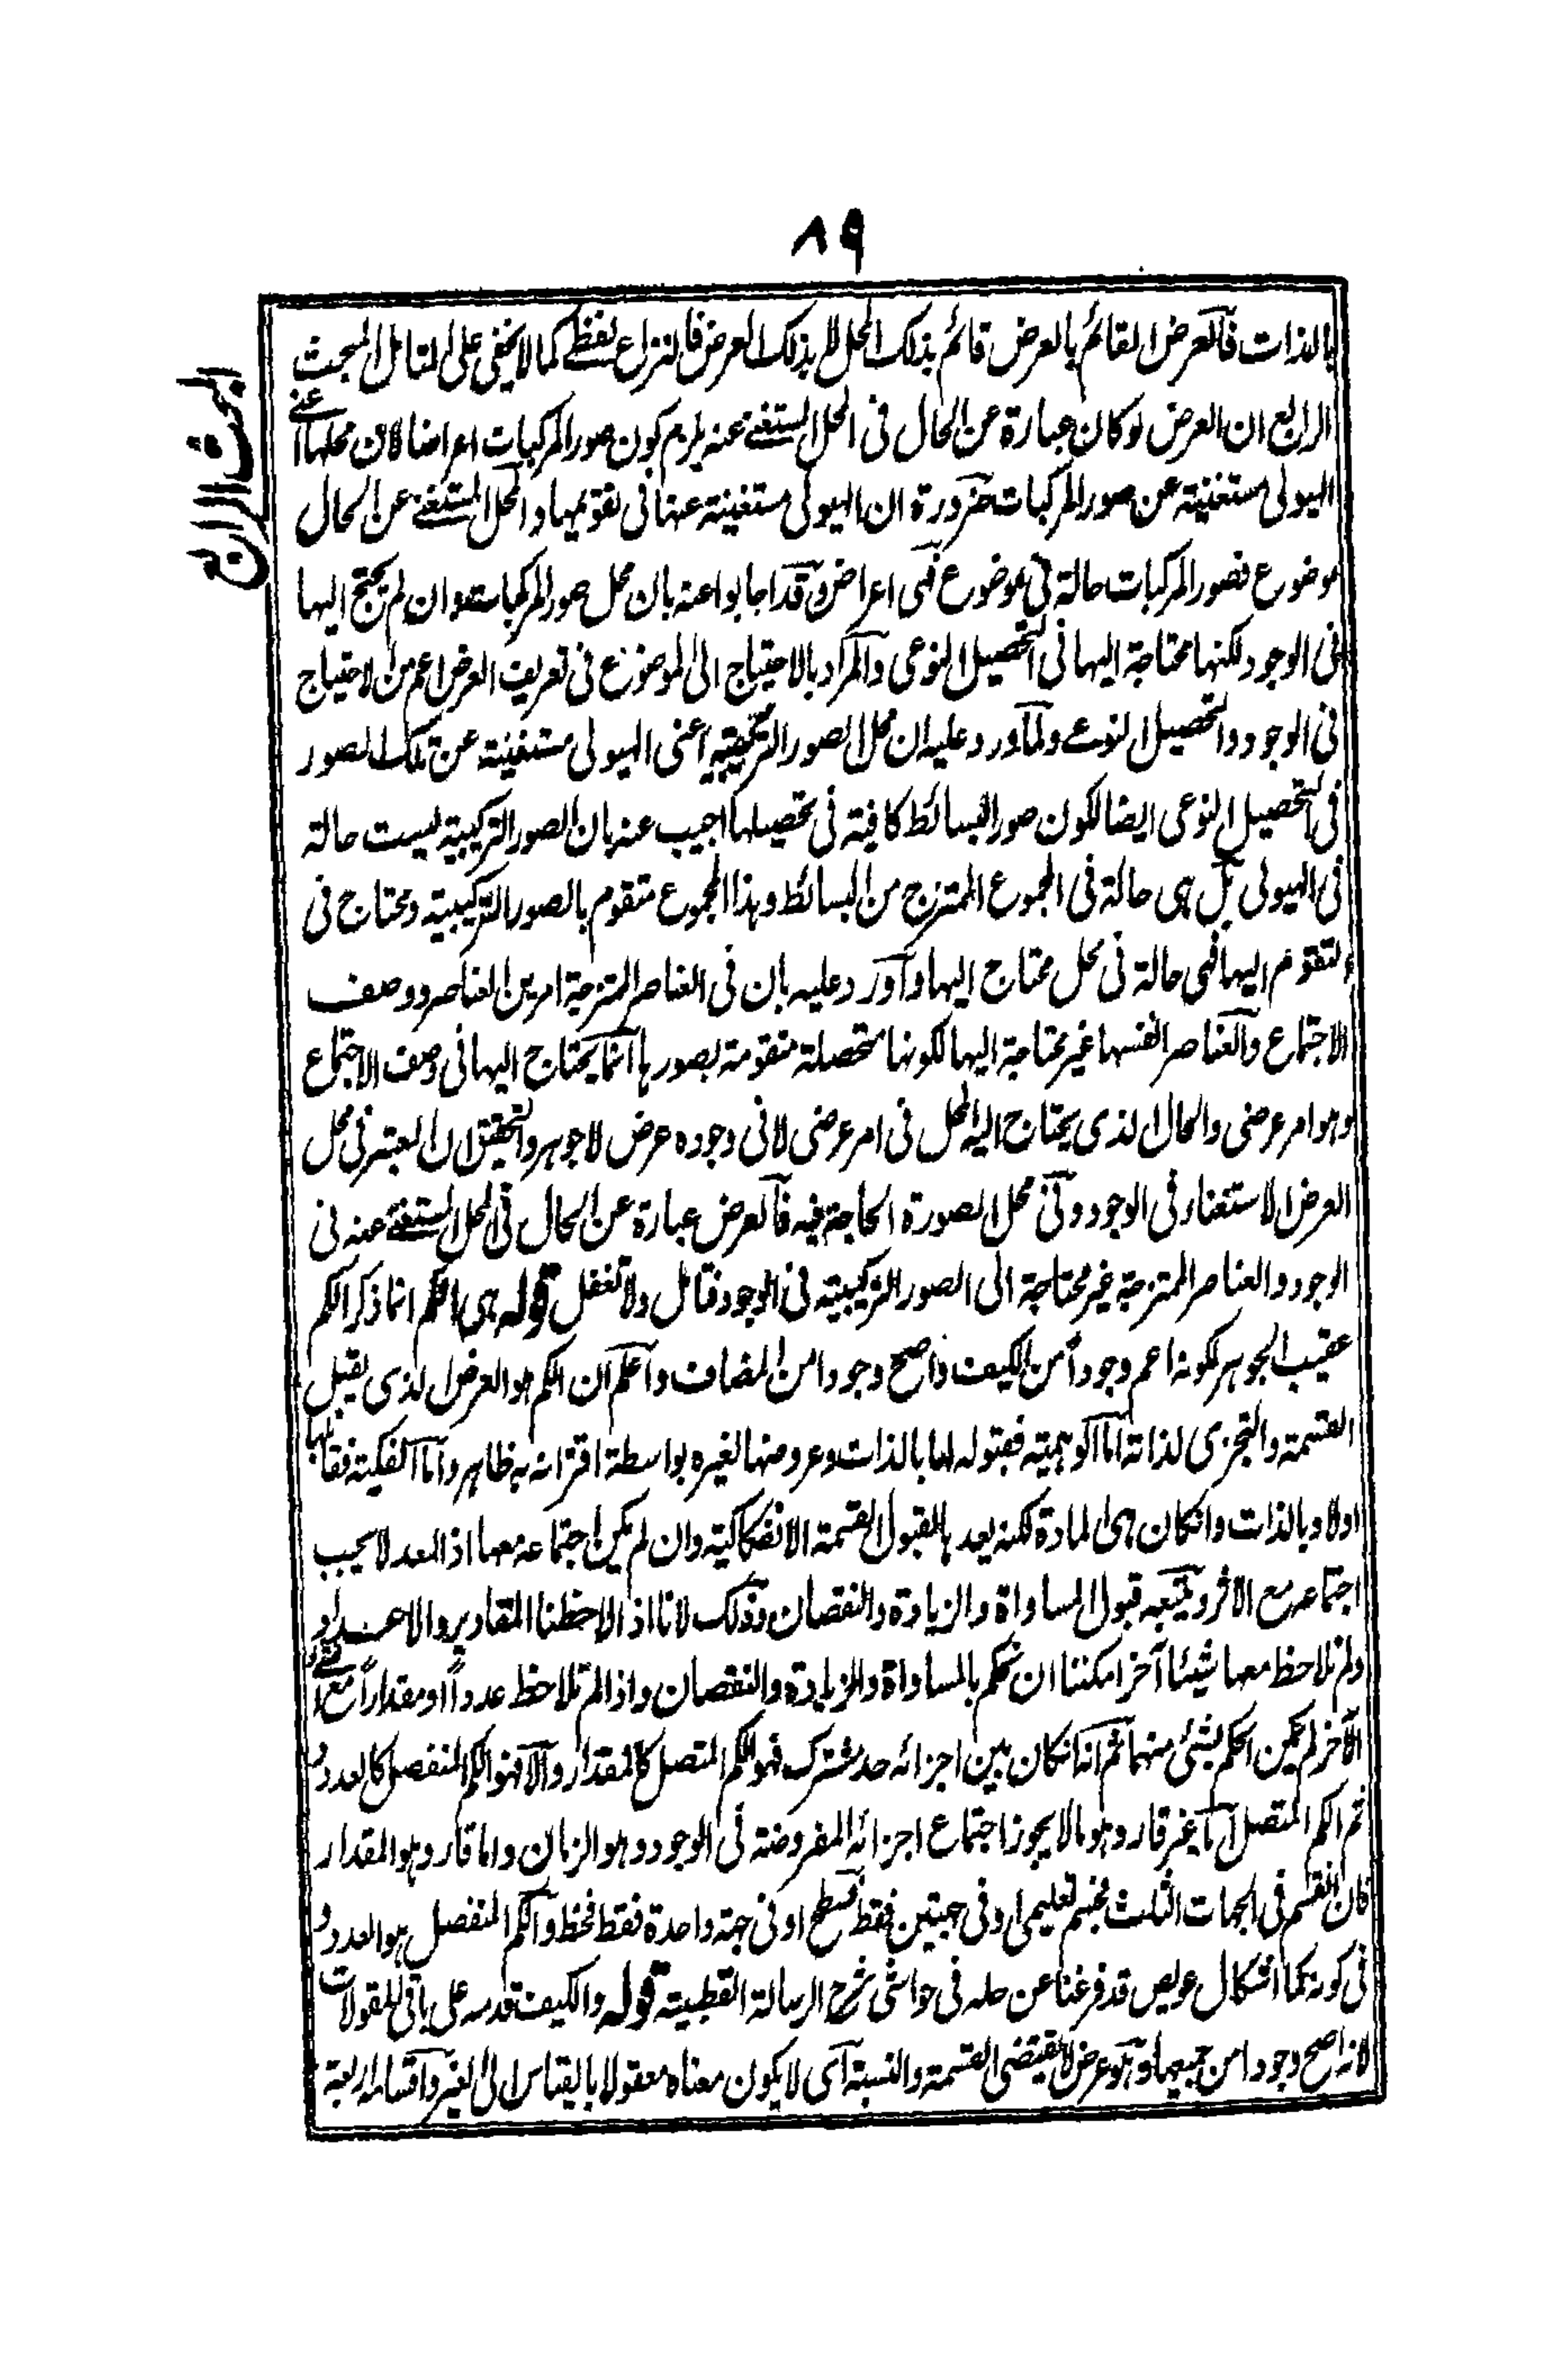 ٨٩
بالذات فالعرض القائم بالعرض قائم بذلك المحل لا بذلك العرض فالنزاع لفظي كما لا يخفى على المتامل المبحث
البحث الرابع
الرابع ان العرض لو كان عبارة عن الحال فى المحل المستغنى عنه يلزم كون صور المركبات اعراضا لان محلها اعنى
الهيولى مستغنية عن صور المركبات ضرورة ان الهيولى مستغنية عنها فى تقويمها والمحل المستغنى عن الحال
موضوع فصور المركبات حالة فى موضوع فهى اعراض وقد اجابوا عنه بان محل صور المركبات وان لم يحتج اليها
فى الوجود لكنها محتاجة اليها فى التحصيل النوعى والمراد بالاحتياج الى الموضوع فى تعريف العرض اعم من الاحتياج
فى الوجود والتحصيل النوعى ولما ورد عليه ان محل الصور التركيبية اعنى الهيولى مستغنية عن تلك الصور
فى التحصيل النوعى ايضا لكون صور البسائط كافية فى تحصيلها اجيب عنه بان الصور التركيبية ليست حالة
فى الهيولى بل هى حالة فى المجموع الممتزج من البسائط وهذا المجموع متقوم بالصور التركيبية ومحتاج فى
التقوم اليها فهى حالة فى محل محتاج اليها واورد عليه بان فى العناصر الممتزجة امرين العناصر ووصف
الاجتماع والعناصر انفسها غير محتاجة اليها لكونها متحصلة متقومة بصورها انما يحتاج اليها فى وصف الاجتماع
وهو امر عرضى والحال الذى يحتاج اليه المحل فى امر عرضى لا فى وجوده عرض لا جوهر والتحقيق ان المعتبر فى محل
العرض الاستغناء فى الوجود وفى محل الصورة الحاجة فيه فالعرض عبارة عن الحال فى المحل المستغنى عنه فى
الوجود والعناصر الممتزجة غير محتاجة الى الصور التركيبية فى الوجود فتامل ولا تغفل قوله هى الكم انما ذكر الكم
عقيب الجوهر لكونه اعم وجوداً من الكيف واصح وجودا من المضاف واعلم ان الكم هو العرض الذى يقبل
القسمة والتجزى لذاته اما الوهمية فقبوله لها بالذات وعروضها لغيره بواسطة اقترانه به ظاهر واما الفكية فقابلها
اولا وبالذات وانكان هى المادة لكنه يعدها لقبول القسمة الانفكاكية وان لم يكن اجتماعه معها اذ المعد لا يجب
اجتماعه مع الاثر ويتبعه قبول المساواة والزيادة والنقصان وذلك لانا اذا لاحظنا المقادير والاعداد
ولم نلاحظ معها شيئا آخر امكننا ان نحكم بالمساواة والزيادة والنقصان واذا لم نلاحظ عدداً او مقداراً مع الشئ
الآخر لم يمكن الحكم بشئ منهما ثم انه انكان بين اجزائه حد مشترك فهو الكم المتصل كالمقدار والا فهو الكم المنفصل كالعدد و
ثم الكم المتصل اما غير قار وهو ما لا يجوز اجتماع اجزائه المفروضة فى الوجود وهو الزمان واما قار وهو المقدار
فان انقسم فى الجهات الثلث فجسم تعليمى او فى جهتين فقط فسطح او فى جهة واحدة فقط فخط والكم المنفصل هو العدد و
فى كونه كما اشكال عويص قد فرغنا عن حله فى حواشى شرح الرسالة القطبية قوله والكيف قدمه على باقى المقولات
لانه اصح وجودا من جميعها وهو عرض لا يقتضى القسمة والنسبة اى لا يكون معناه معقولا بالقياس الى الغير واقسامه اربعة